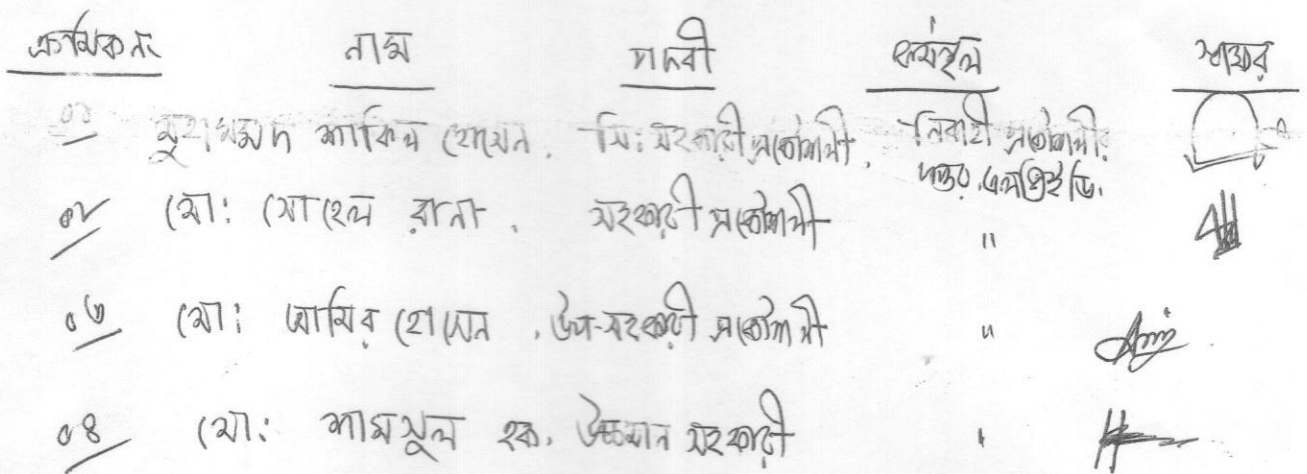 ক্রমিক নং নাম পদবী কর্মস্থল স্বাক্ষর
০১ মুহাম্মদ শাকিল হোসেন, সি: সহকারী প্রকৌশলী, নির্বাহী প্রকৌশলীর
দপ্তর, এলজিইডি.
০২ মো: সোহেল রানা, সহকারী প্রকৌশলী "
০৩ মো: আমির হোসেন, উপ-সহকারী প্রকৌশলী "
০৪ মো: শামসুল হক, উচ্চমান সহকারী "